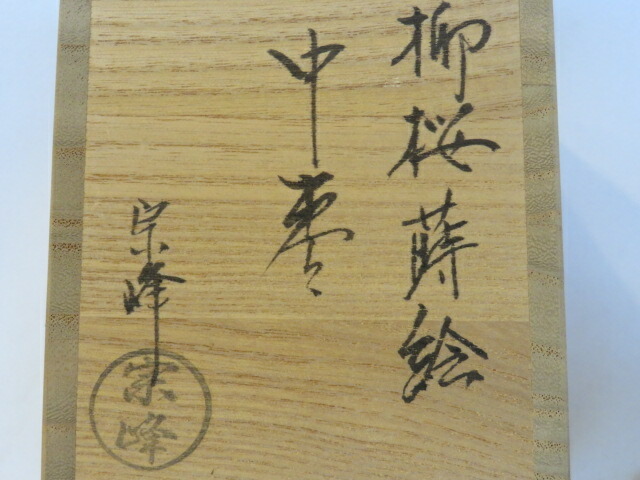 柳桜蒔絵
中棗
宗峰
宗峰